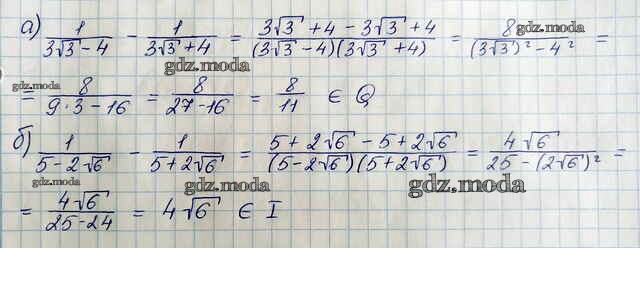 а) 1/(3√3 - 4) - 1/(3√3 + 4) = (3√3 + 4 - 3√3 + 4)/((3√3 - 4)(3√3 + 4)) = 8/((3√3)² - 4²) =
gdz.moda
gdz.moda
gdz.moda
= 8/(9·3 - 16) = 8/(27 - 16) = 8/11 ∈ Q
б) 1/(5 - 2√6) - 1/(5 + 2√6) = (5 + 2√6 - 5 + 2√6)/((5 - 2√6)(5 + 2√6)) = 4√6/(25 - (2√6)²) =
gdz.moda
gdz.moda
gdz.moda
= 4√6/(25 - 24) = 4√6 ∈ I